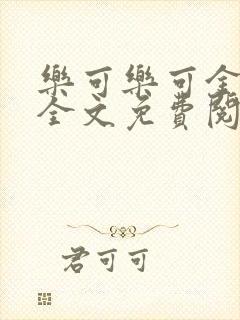 樂可樂可全
全文免費閱
君可可